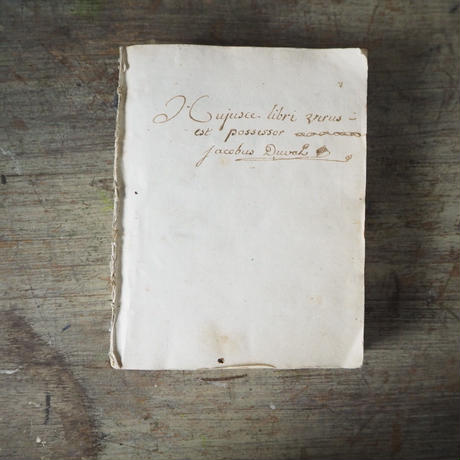 Hujusce libri verus
est possessor
Jacobus Duval